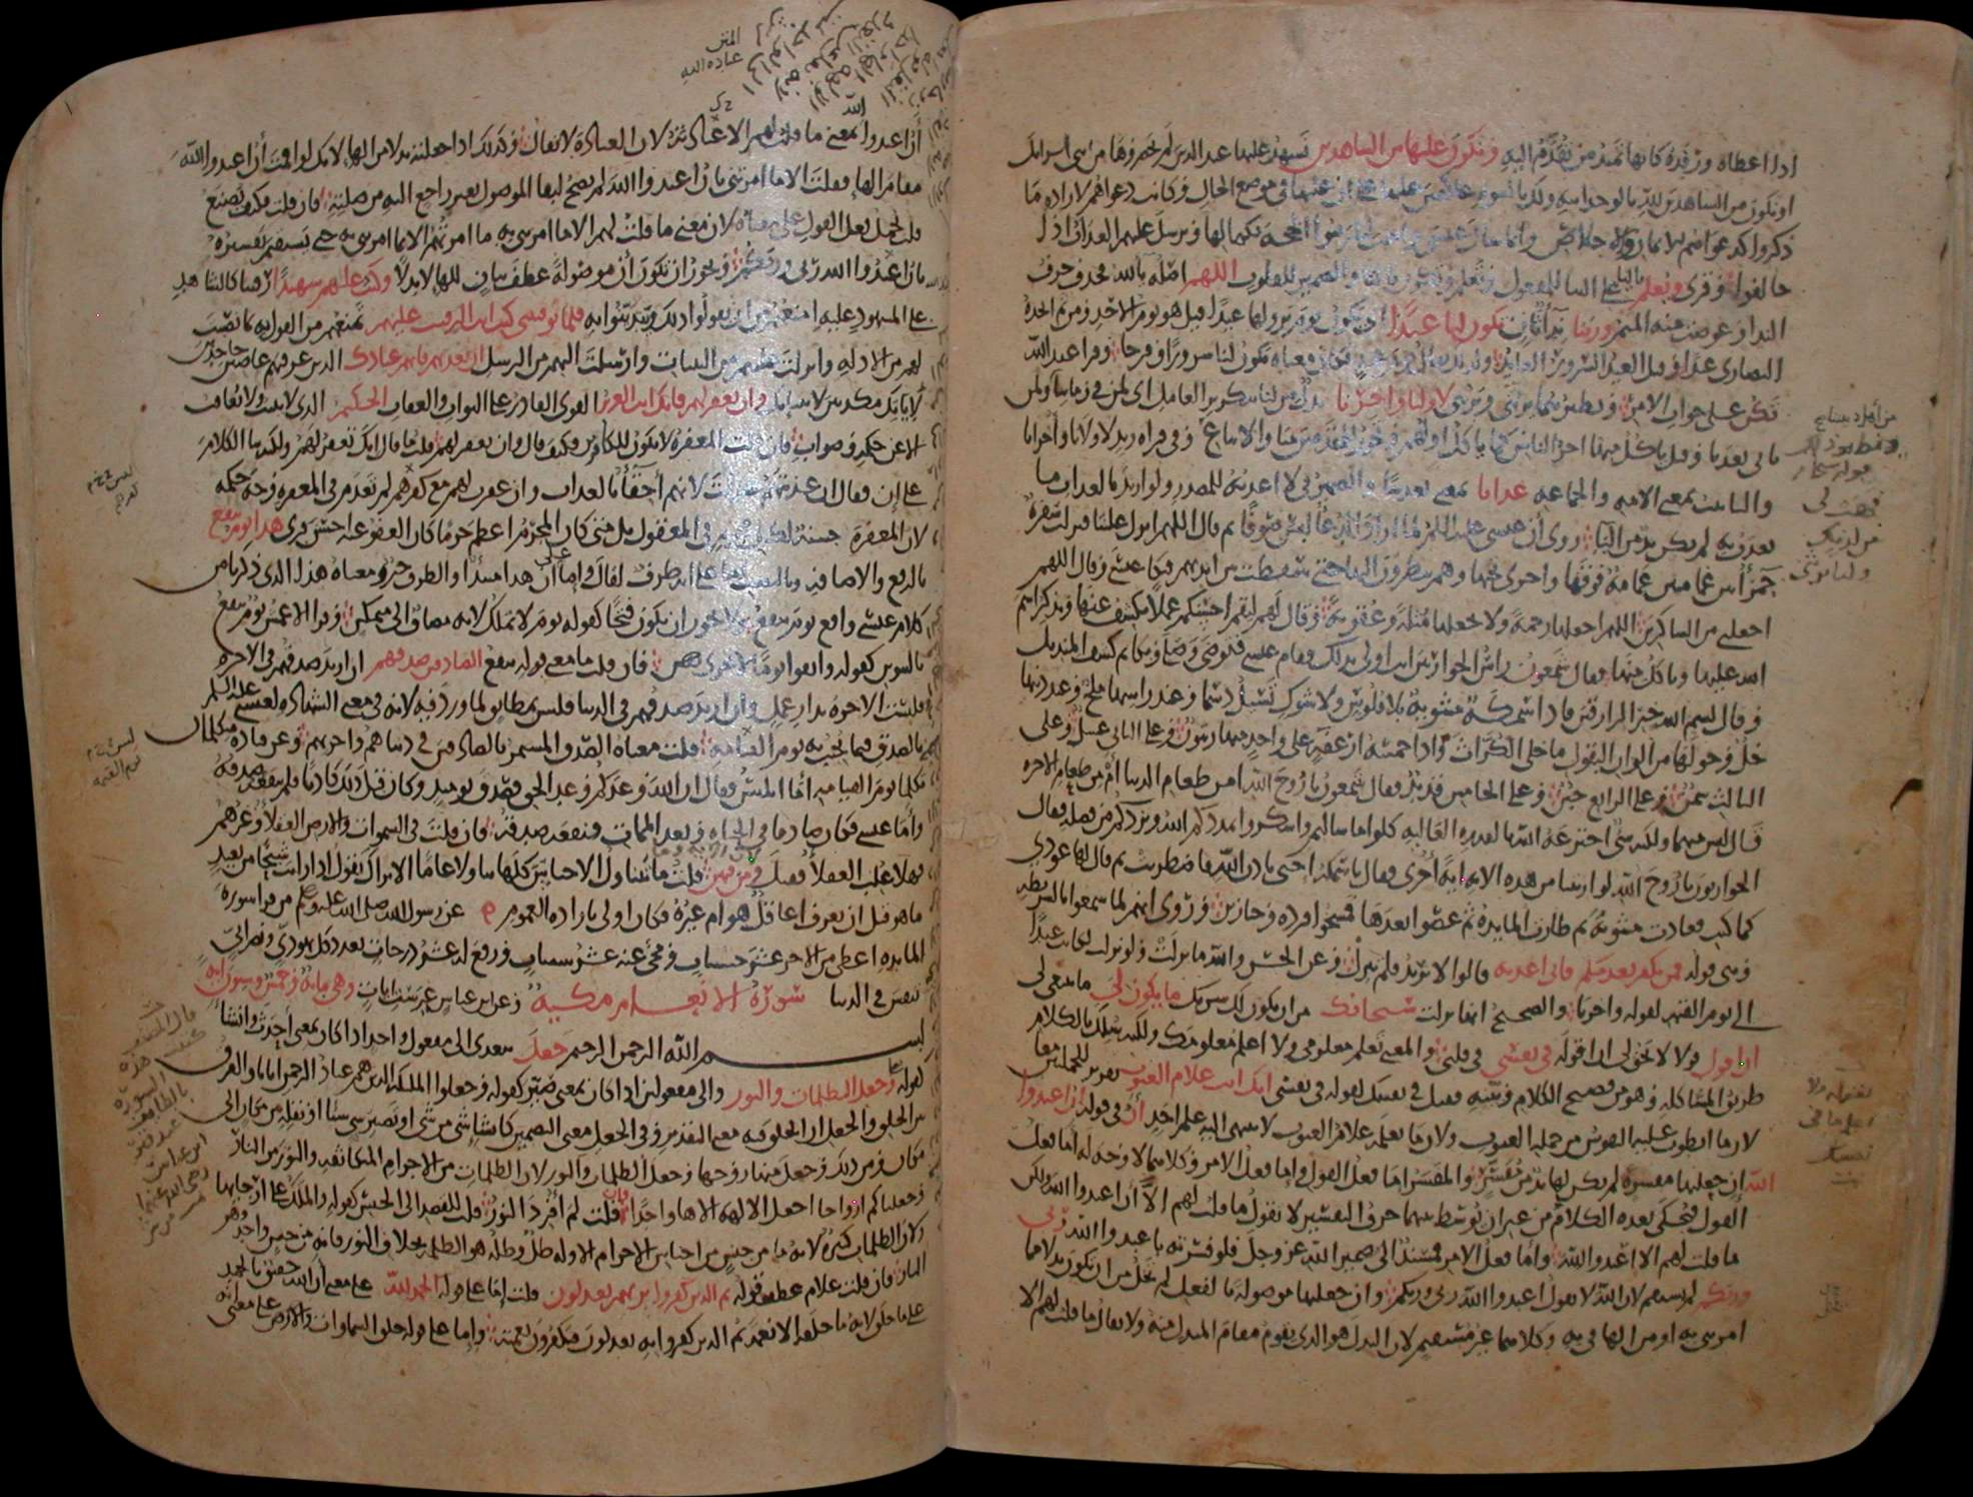 اذا اعطاه ورفده كانها تميد من تقدم اليه ونكون عليها من الشاهدين نشهد عليها عند الذين لم يحضروها من بني اسرائيل
او نكون من الشاهدين لله بالوحدانية ولك بالنبوة عاكفين عليها على ان عليها في موضع الحال وكانت دعواهم لارادة ما
ذكروا كدعواهم الايمان والاخلاص وانما سال عيسى واجيب ليلزموا الحجة بكمالها ويرسل عليهم العذاب اذا
خالفوا وقرى ويعلم بالياء على البناء للمفعول وتعلم وتكون بالتاء والضمير للقلوب اللهم اصله يالله فحذف حرف
النداء وعوضت منه الميم وربنا نداء ثان تكون لنا عيدا اي يكون يوم نزولها عيدا قيل هو يوم الاحد ومن ثم اتخذه
النصارى عيدا وقيل العيد السرور العائد ولذلك يقال يوم عيد فكان معناه تكون لنا سرورا وفرحا وقرا عبد الله
تكن على جواب الامر ونظيرهما يرثني ويرثني لاولنا واخرنا بدل من لنا بتكرير العامل اي لمن في زماننا ولمن
ياتي بعدنا وقيل ياكل منها اخر الناس كما ياكل اولهم ويجوز للمقدمين منا والاتباع وفي قراءة زيد لاولانا واخرانا
والتانيث بمعنى الامة والجماعة عذابا بمعنى تعذيبا والضمير في لا اعذبه للمصدر ولو اريد بالعذاب ما
يعذب به لم يكن بد من الباء روي أن عيسى عليه السلام لما اراد الدعاء لبس صوفا ثم قال اللهم انزل علينا فنزلت سفرة
حمراء بين غمامتين غمامة فوقها واخرى تحتها وهم ينظرون اليها حتى سقطت بين ايديهم فبكى عيسى وقال اللهم
اجعلني من الشاكرين اللهم اجعلها رحمة ولا تجعلها مثلة وعقوبة وقال لهم ليقم احسنكم عملا يكشف عنها ويذكر اسم
الله عليها وياكل منها فقال شمعون راس الحواريين انت اولى بذلك فقام عيسى فتوضى وصلى وبكا ثم كشف المنديل
وقال بسم الله خير الرازقين فاذا سمكة مشوية بلا فلوس ولا شوك تسيل دسما وعند راسها ملح وعند ذنبها
خل وحولها من الوان البقول ما خلى الكراث واذا خمسة ارغفة على واحد منها زيتون وعلى الثاني عسل وعلى
الثالث سمن وعلى الرابع جبن وعلى الخامس قديد فقال شمعون يا روح الله امن طعام الدنيا أم من طعام الاخرة
قال ليس منهما ولكنه شي اخترعه الله بالقدرة الغالبة كلوا ما سالتم واشكروا يمددكم الله ويزدكم من فضله فقال
الحواريون يا روح الله لو اريتنا من هذه الاية اية أخرى فقال يا سمكة احيي باذن الله فاضطربت ثم قال لها عودي
كما كنت فعادت مشوية ثم طارت المائدة ثم عصوا بعدها فمسخوا قردة وخنازير وروى انهم لما سمعوا بالشريطة
وهي قوله فمن يكفر بعد منكم فاني اعذبه قالوا لا نريد فلم تنزل وعن الحسن والله ما نزلت ولو نزلت لكانت عيدا
الى يوم القيمة لقوله واخرنا والصحيح انها نزلت سبحانك من ان يكون لك شريك ما يكون لي ما ينبغي لي
ان اقول قولا لا يحق لي ان اقوله في نفسي في قلبي والمعنى تعلم معلومي ولا اعلم معلومك ولكنه سلك بالكلام
طريق المشاكلة وهو من فصيح الكلام وبينه فقيل في نفسك لقوله في نفسي انك انت علام الغيوب تقرير للجملتين معا
لان ما انطوت عليه النفوس من جملة الغيوب ولان ما يعلمه علام الغيوب لا ينتهي اليه علم احد أن في قوله أن اعبدوا
الله ان جعلتها مفسرة لم يكن لها بد من مفسر والمفسر اما فعل القول واما فعل الامر وكلاهما لا وجه له أما فعل
القول فيحكى بعده الكلام من غير ان يوسط بينهما حرف التفسير لا تقول ما قلت لهم الا أن اعبدوا الله ولكن
ما قلت لهم الا اعبدوا الله وأما فعل الامر فمسند الى ضمير الله عز وجل فلو فسرته باعبدوا الله ربي
وربكم لم يستقم لان الله لا يقول اعبدوا الله ربي وربكم وان جعلتها موصولة بالفعل لم تخل من ان تكون بدلا من ما
امرتني به او من الهاء في به وكلاهما غير مستقيم لان البدل هو الذي يقوم مقام المبدل منه ولا يقال ما قلت لهم الا
أن اعبدوا الله بمعنى ما قلت لهم الا عبادته لان العبادة لا تقال وكذلك اذا جعلته بدلا من الهاء لانك لو اقمت أن اعبدوا الله
مقام الهاء فقلت الا ما امرتني بان اعبدوا الله لم يصح لبقاء الموصول بغير راجع اليه من صلته فان قلت فكيف تصنع
قلت يحمل فعل القول على معناه لان معنى ما قلت لهم الا ما امرتني به ما امرتهم الا بما امرتني به حتى يستقيم تفسيره
بان اعبدوا الله ربي وربكم ويجوز ان تكون أن موصولة عطف بيان للهاء لا بدلا وكنت عليهم شهيدا رقيبا كالشاهد
على المشهود عليه امنعهم من ان يقولوا ذلك ويتدينوا به فلما توفيتني كنت انت الرقيب عليهم تمنعهم من القول به بما نصبت
لهم من الادلة وانزلت عليهم من البينات وارسلت اليهم من الرسل ان تعذبهم فانهم عبادك الذين عرفتهم عاصين جاحدين
لاياتك مكذبين لانبيائك وان تغفر لهم فانك انت العزيز القوي القادر على الثواب والعقاب الحكيم الذي لا يثيب ولا يعاقب
الا عن حكمة وصواب فان قلت المغفرة لا تكون للكفار فكيف قال وان تغفر لهم قلت ما قال انك تغفر لهم ولكنه بنا الكلام
على إن فقال ان عذبتهم عدلت لانهم أحقاء بالعذاب وان غفرت لهم مع كفرهم لم تعدم في المغفرة وجه حكمة
لان المغفرة حسنة لكل مجرم في المعقول بل متى كان المجرم اعظم جرما كان العفو عنه احسن قرى هذا يوم ينفع
بالرفع والاضافة وبالنصب اما على انه ظرف لقال واما على ان هذا مبتدأ والظرف خبر ومعناه هذا الذي ذكرنا من
كلام عيسى واقع يوم ينفع ولا يجوز ان يكون فتحا كقوله يوم لا تملك لانه مضاف الى متمكن وقرا الاعمش يوم ينفع
بالتنوين كقوله واتقوا يوما لا تجزي نفس فان قلت ما معنى قوله ينفع الصادقين صدقهم ان اريد صدقهم في الاخرة
فليست الاخرة بدار عمل وان اريد صدقهم في الدنيا فليس بمطابق لما ورد فيه لانه في معنى الشهادة لعيسى عليه السلم
بالصدق فيما يجيب به يوم القيامة قلت معناه الصدق المستمر بالصادقين في دنياهم واخرتهم وعن قتادة متكلمان
تكلما يوم القيامة أما ابليس فقال ان الله وعدكم وعد الحق فصدق يومئذ وكان قبل ذلك كاذبا فلم ينفعه صدقه
وأما عيسى فكان صادقا في الحياة وبعد الممات فنفعه صدقه فان قلت في السموات والارض العقلا وغيرهم
فهلا غلب العقلا فقيل ومن فيهن قلت ما تتناول الاجناس كلها تناولا عاما الا تراك تقول اذا رايت شبحا من بعيد
ما هو قبل ان تعرف اعاقل هو ام غيره فكان اولى بارادة العموم عن رسول الله صلى الله عليه وسلم من قرا سورة
المائدة اعطي من الاجر عشر حسنات ومحي عنه عشر سيئات ورفع له عشر درجات بعدد كل يهودي ونصراني
يتنفس في الدنيا سورة الانعام مكية وعن ابن عباس غير ست ايات وهي مائة وخمس وستون آية
بسم الله الرحمن الرحيم جعل يتعدى الى مفعول واحد اذا كان بمعنى أحدث وانشأ
كقوله وجعل الظلمات والنور والى مفعولين اذا كان بمعنى صير كقوله وجعلوا الملئكة الذين هم عباد الرحمن اناثا والفرق
بين الخلق والجعل ان الخلق فيه معنى التقدير وفي الجعل معنى التصيير كانشاء شي من شي او تصيير شي شيئا او نقله من مكان الى
مكان ومن ذلك وجعل منها زوجها وجعل الظلمات والنور لان الظلمات من الاجرام المتكاثفة والنور من النار
وجعلناكم ازواجا اجعل الالهة الاها واحدا فان قلت لم أفرد النور قلت للقصد الى الجنس كقوله والملك على ارجائها
ولان الظلمات كثيرة لانه ما من جنس من اجناس الاجرام الا وله ظل وظله هو الظلمة بخلاف النور فانه من جنس واحد وهو
النار فان قلت علام عطف قوله ثم الذين كفروا بربهم يعدلون قلت إما على قوله الحمد لله على معنى أن الله حقيق بالحمد
على ما خلق لانه ما خلقه الا نعمة ثم الذين كفروا به يعدلون فيكفرون نعمته وإما على قوله خلق السماوات والارض على معنى أنه